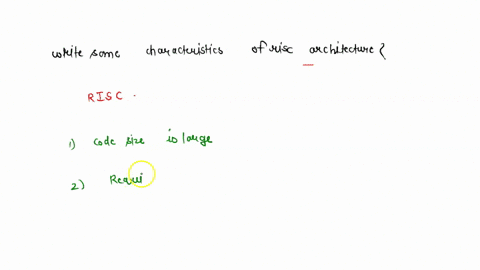 write some characteristics of risc architecture {
RISC .
1) code size is large
2) Requi